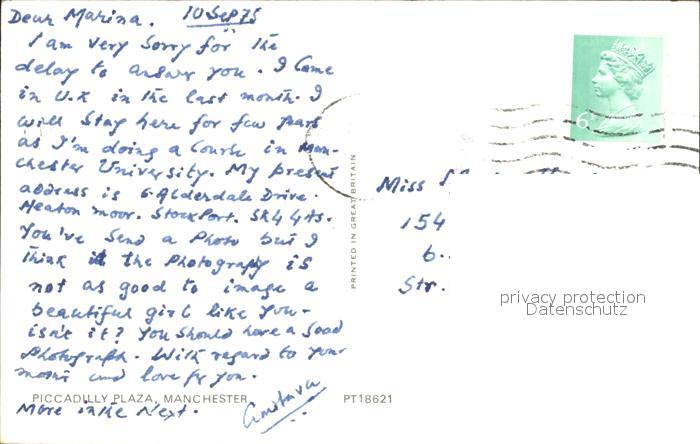 Dear Marina. 10 Sep 75
I am very sorry for the
delay to answer you. I Came
in U.K in the last month. I
will stay here for few years
as I'm doing a Course in Man-
chester University. My present
address is 6 Alderdale Drive.
Heaton moor. StockPort. SK4 4AS.
You've send a Photo but I
think it the Photography is
not as good to image a
beautiful girl like you-
isn't it? You should have a good
Photograph. With regard to your
mom's and love for you.
PICCADILLY PLAZA, MANCHESTER
More in the Next.
PRINTED IN GREAT BRITAIN
PT18621
6
Miss
154
6..
Str.
privacy protection
Datenschutz